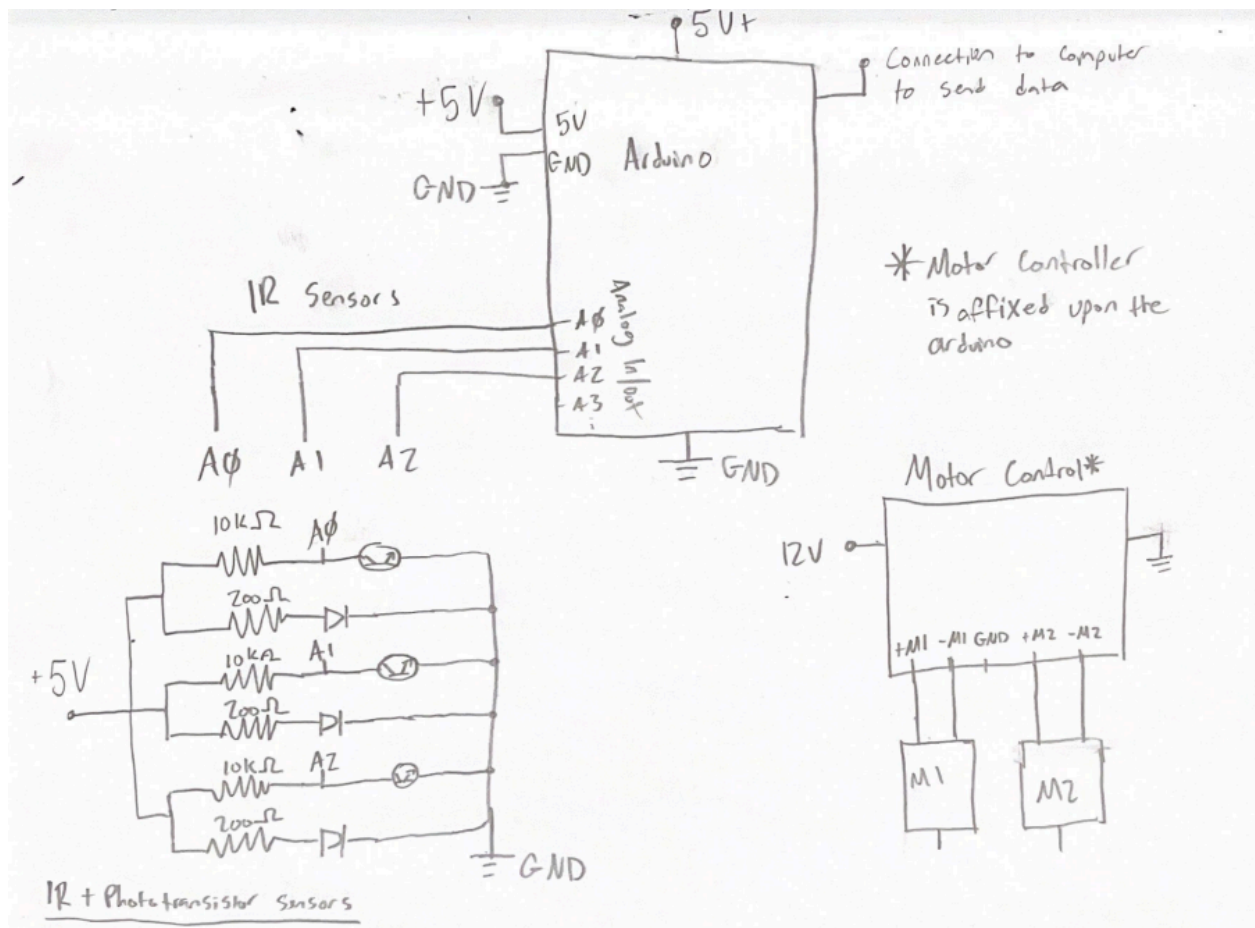 5V+
Connection to computer
to send data
+5V
5V
GND
Arduino
GND
IR Sensors
Analog In/Out
AØ
A1
A2
A3
AØ
A1
A2
GND
* Motor Controller
is affixed upon the
arduino
Motor Control*
12V
+M1 -M1 GND +M2 -M2
M1
M2
10KΩ
AØ
200Ω
10KΩ
A1
+5V
200Ω
10KΩ
A2
200Ω
GND
IR + Phototransistor Sensors